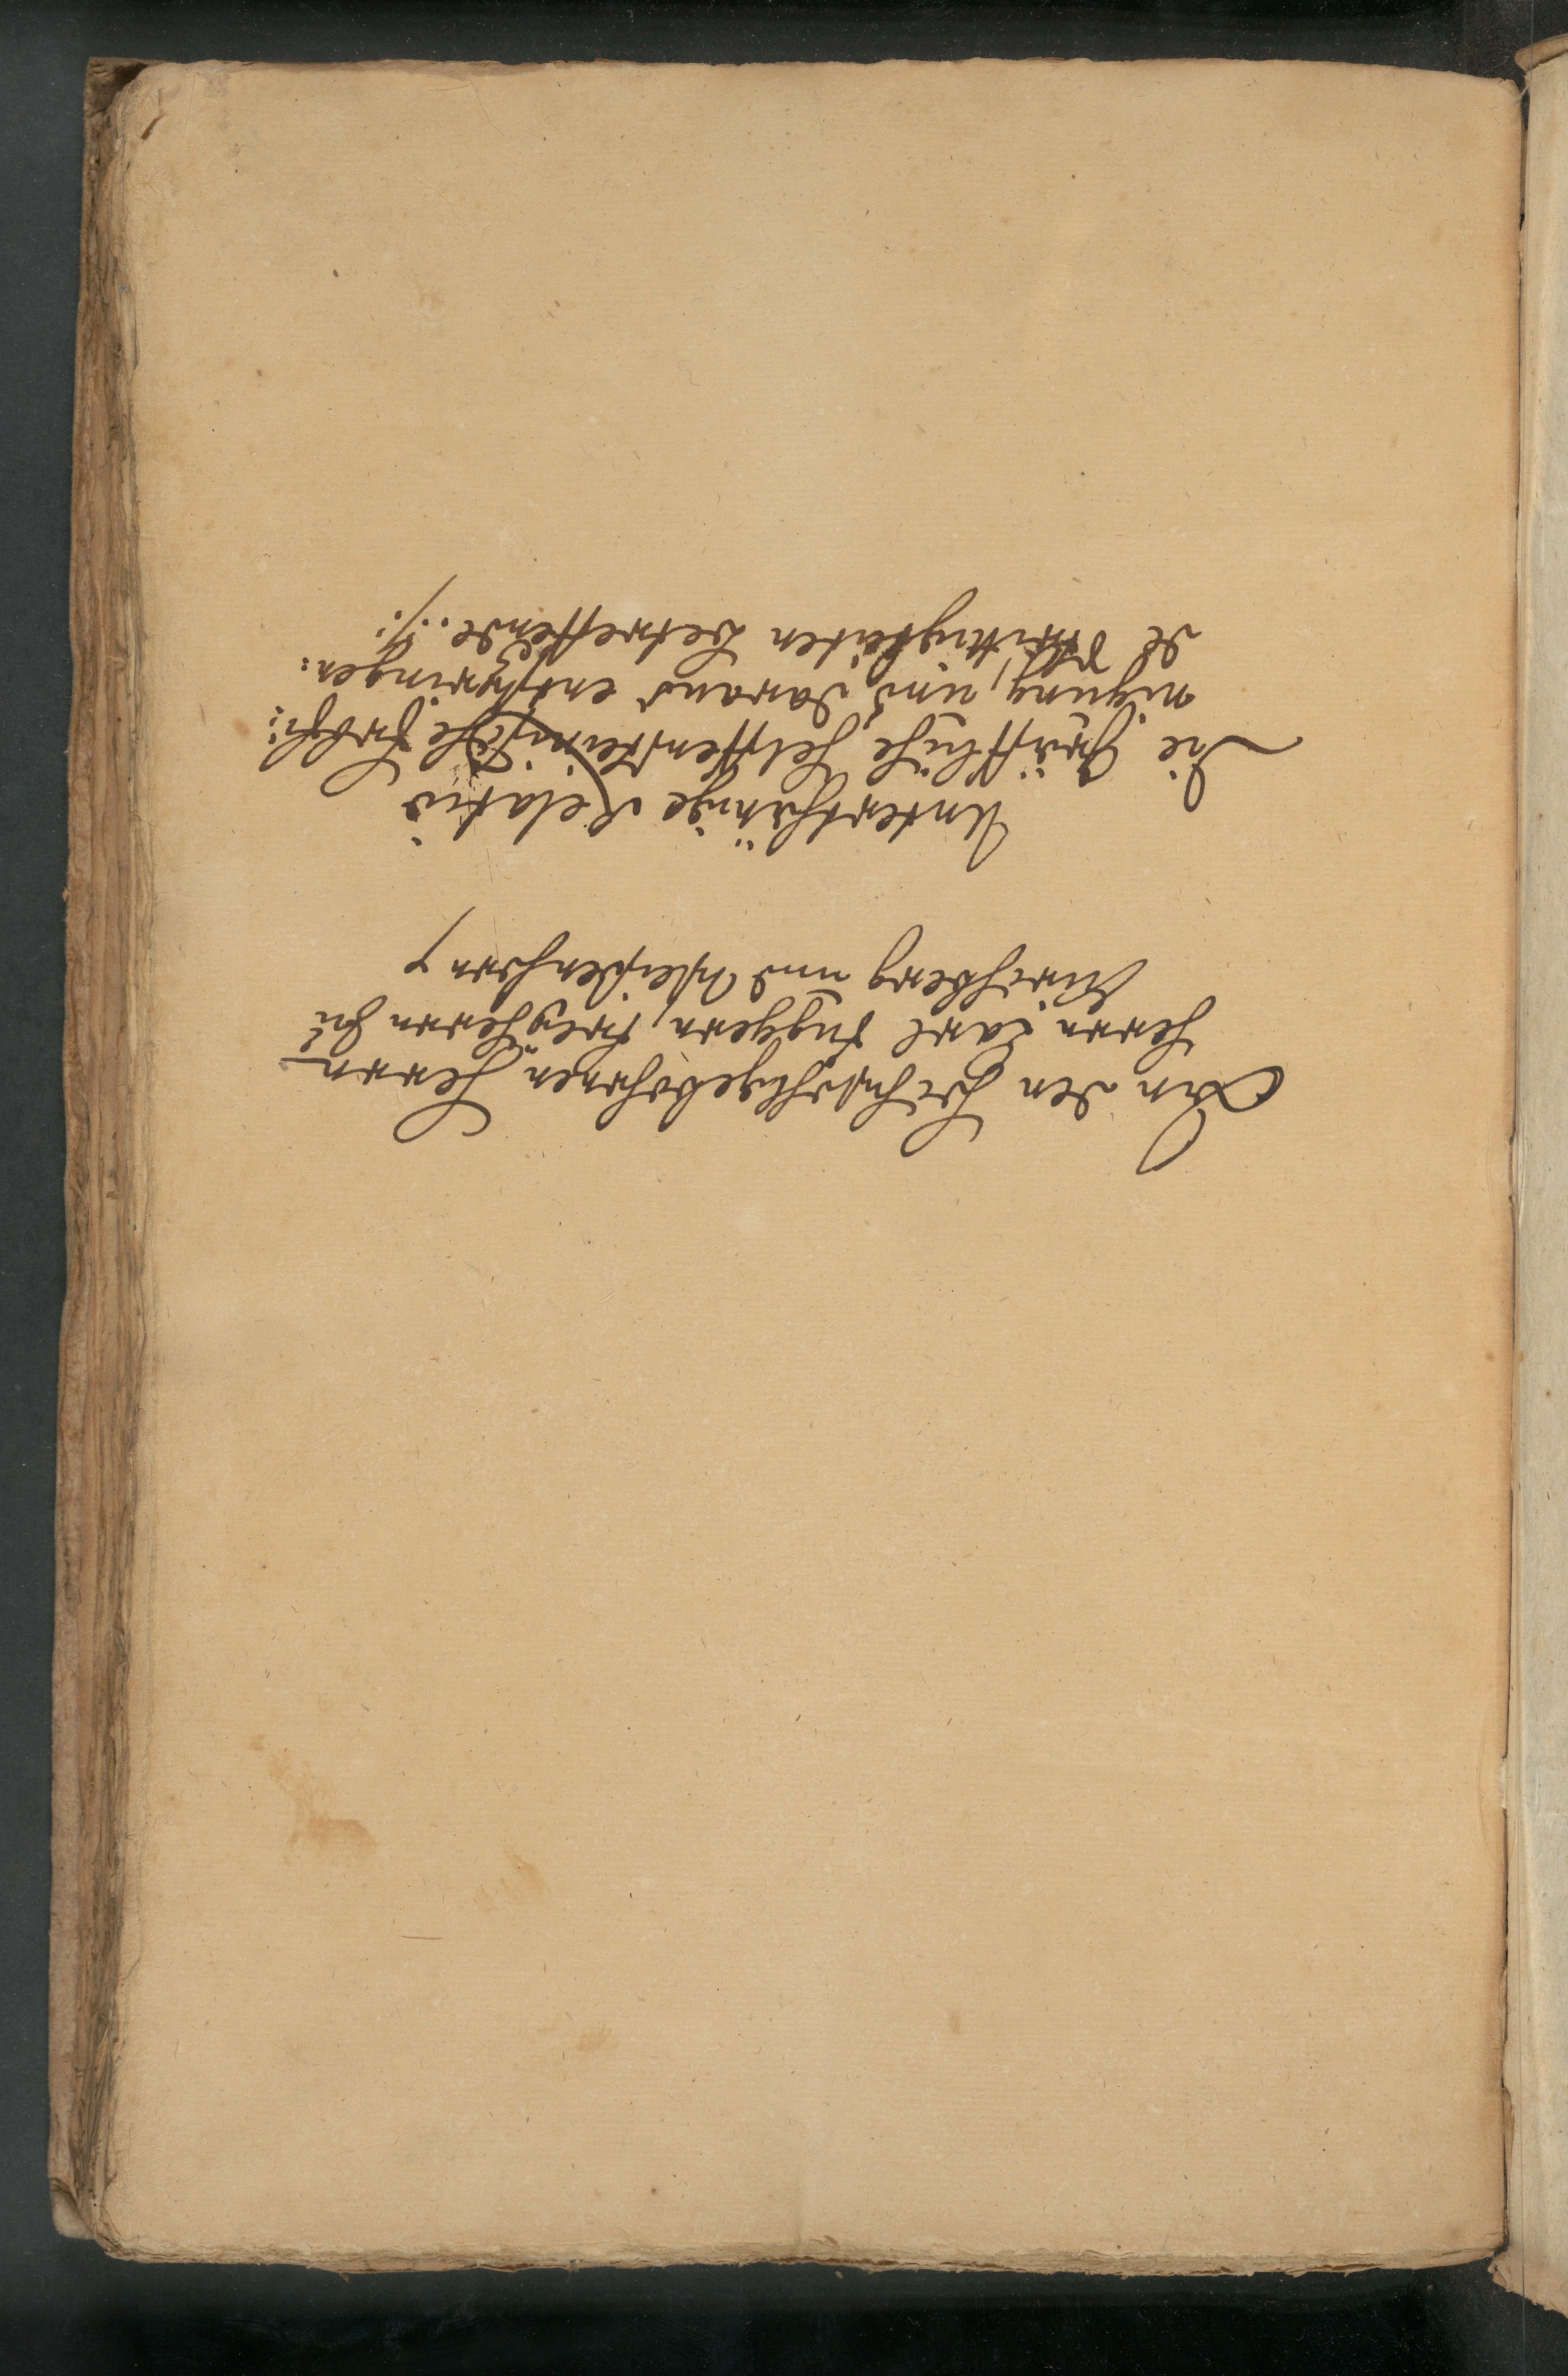 An den Hochwohlgebohrnen Herrn
Herrn Carl Fuggern, Freyherrn zu
Kirchberg und Weissenhorn
Unterthänige Relatio
Die Gräffliche Helffensteinische
nigung, und daraus entspringen:
de Strittigkeiten betreffende.